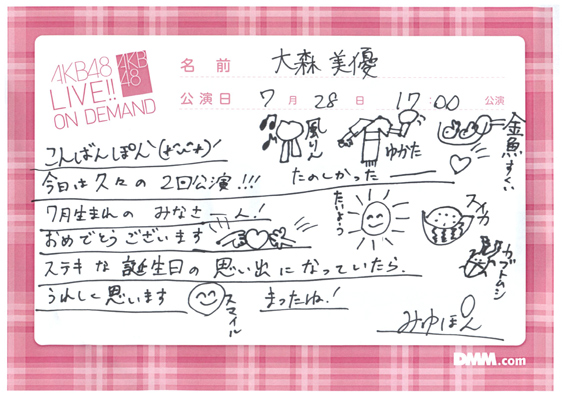 AKB48
LIVE!!
ON DEMAND
AKB
48
名前 大森美優
公演日 7月28日 17:00 公演
こんばんぽん(*´˘`*)!
風りん
ゆかた
金魚すくい
今日は久々の2回公演!!! たのしかったー
7月生まれのみなさーん!
おめでとうございます
たいよう
スイカ
カブトムシ
ステキな誕生日の思い出になっていたら、
うれしく思います
スマイル
まったね!
みゆぽん
DMM.com